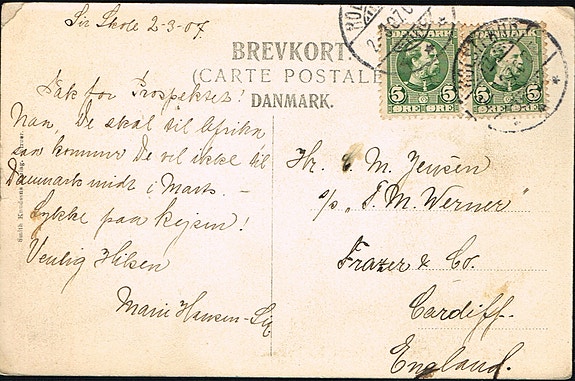 Sir Skole 2-3-07.
BREVKORT.
(CARTE POSTALE)
DANMARK.
DANMARK DANMARK
5 5 5 5
ØRE ØRE ØRE ØRE
Tak for Prospektet!
Naar De skal til Afrika
saa kommer De vel ikke til
Danmark midt i Marts. –
Lykke paa Rejsen!
Venlig Hilsen
Marie Hansen-Sir
Hr. C. M. Jensen
s/s „T. M. Werner"
Frazer & Co.
Cardiff.
England.